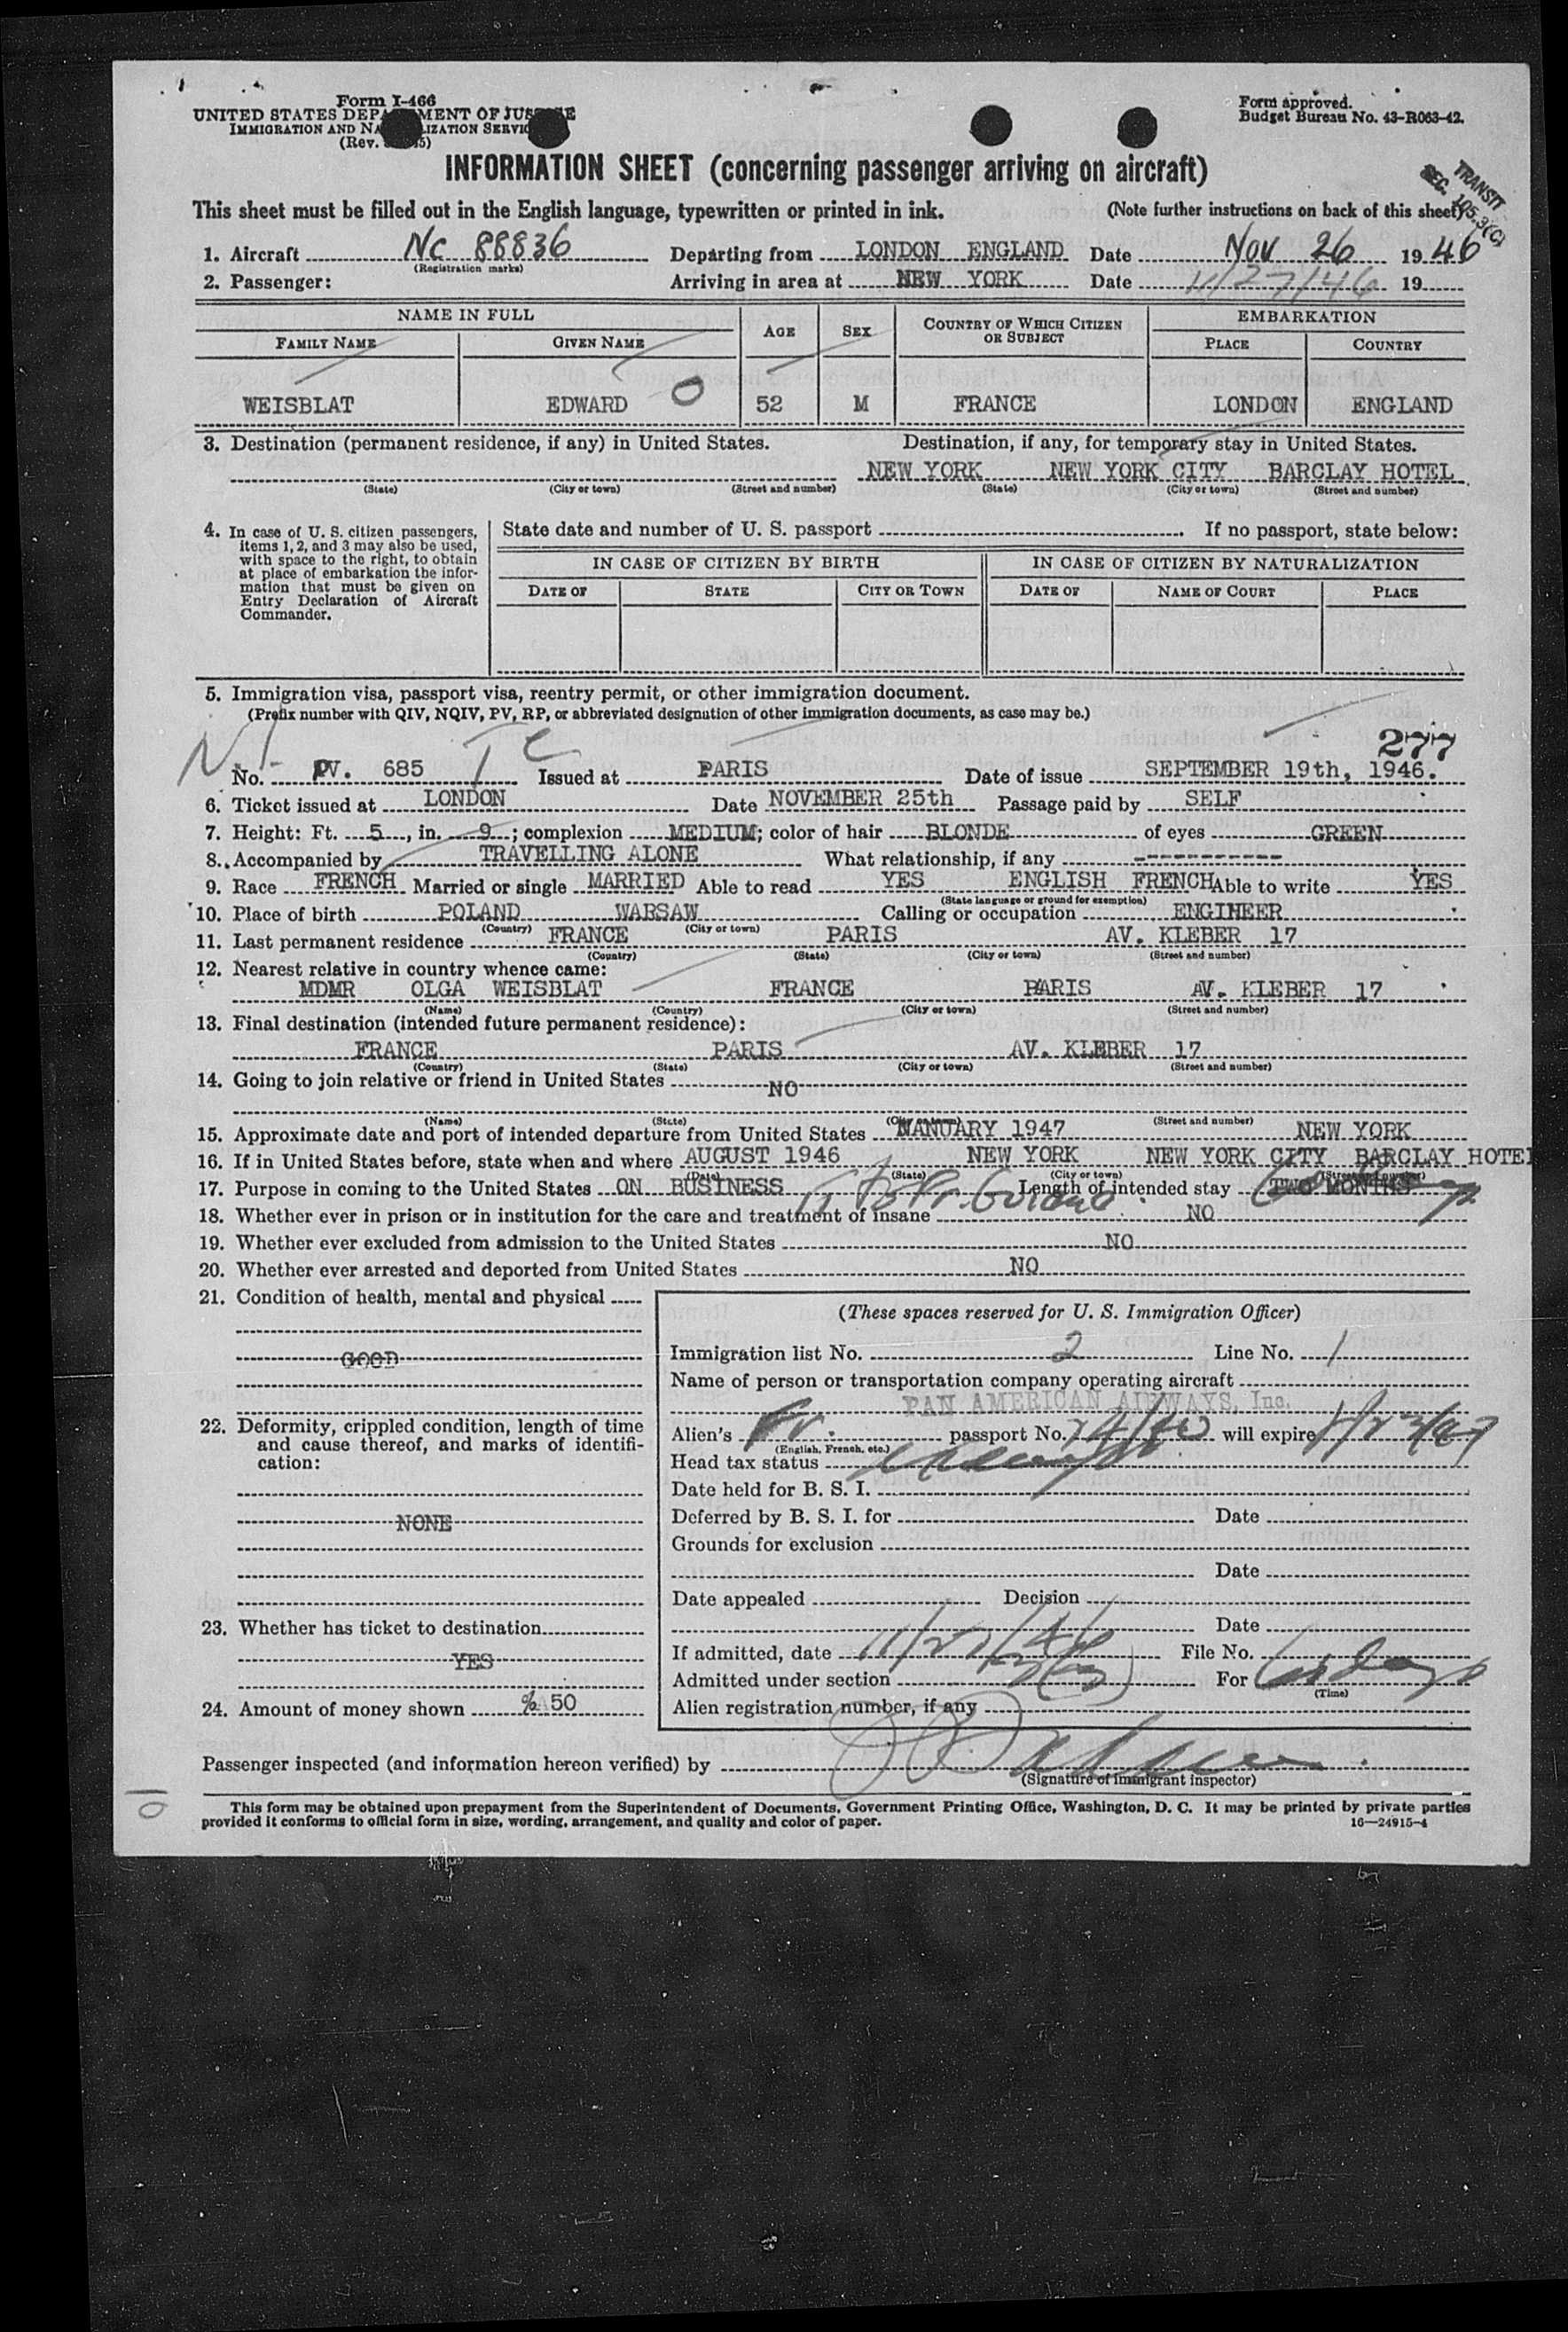 Form I-466
UNITED STATES DEPARTMENT OF JUSTICE
IMMIGRATION AND NATURALIZATION SERVICE
(Rev.
Form approved.
Budget Bureau No. 43-R063-42.
INFORMATION SHEET (concerning passenger arriving on aircraft)
SEC. TRANSIT 105.3(C)
This sheet must be filled out in the English language, typewritten or printed in ink. (Note further instructions on back of this sheet)
1. Aircraft Nc 88836 Departing from LONDON ENGLAND Date Nov 26 1946
(Registration marks)
2. Passenger: Arriving in area at NEW YORK Date 11/27/46 19
NAME IN FULL AGE SEX COUNTRY OF WHICH CITIZEN OR SUBJECT EMBARKATION
FAMILY NAME GIVEN NAME PLACE COUNTRY
WEISBLAT EDWARD O 52 M FRANCE LONDON ENGLAND
3. Destination (permanent residence, if any) in United States. Destination, if any, for temporary stay in United States.
NEW YORK NEW YORK CITY BARCLAY HOTEL
(State) (City or town) (Street and number) (State) (City or town) (Street and number)
4. In case of U. S. citizen passengers, items 1, 2, and 3 may also be used, with space to the right, to obtain at place of embarkation the information that must be given on Entry Declaration of Aircraft Commander.
State date and number of U. S. passport If no passport, state below:
IN CASE OF CITIZEN BY BIRTH IN CASE OF CITIZEN BY NATURALIZATION
DATE OF STATE CITY OR TOWN DATE OF NAME OF COURT PLACE
5. Immigration visa, passport visa, reentry permit, or other immigration document.
(Prefix number with QIV, NQIV, PV, RP, or abbreviated designation of other immigration documents, as case may be.)
277
No. PV. 685 Issued at PARIS Date of issue SEPTEMBER 19th, 1946.
6. Ticket issued at LONDON Date NOVEMBER 25th Passage paid by SELF
7. Height: Ft. 5, in. 9; complexion MEDIUM; color of hair BLONDE of eyes GREEN
8. Accompanied by TRAVELLING ALONE What relationship, if any -----------
9. Race FRENCH Married or single MARRIED Able to read YES ENGLISH FRENCH Able to write YES
(State language or ground for exemption)
10. Place of birth POLAND WARSAW Calling or occupation ENGINEER
(Country) (City or town)
11. Last permanent residence FRANCE PARIS AV. KLEBER 17
(Country) (State) (City or town) (Street and number)
12. Nearest relative in country whence came:
MDMR OLGA WEISBLAT FRANCE PARIS AV. KLEBER 17
(Name) (Country) (City or town) (Street and number)
13. Final destination (intended future permanent residence):
FRANCE PARIS AV. KLEBER 17
(Country) (State) (City or town) (Street and number)
14. Going to join relative or friend in United States NO
(Name) (State) (City or town) (Street and number)
15. Approximate date and port of intended departure from United States JANUARY 1947 NEW YORK
16. If in United States before, state when and where AUGUST 1946 NEW YORK NEW YORK CITY BARCLAY HOTEL
(Date) (State) (City or town) (Street and number)
17. Purpose in coming to the United States ON BUSINESS Length of intended stay TWO MONTHS
18. Whether ever in prison or in institution for the care and treatment of insane NO
19. Whether ever excluded from admission to the United States NO
20. Whether ever arrested and deported from United States NO
21. Condition of health, mental and physical
GOOD
22. Deformity, crippled condition, length of time and cause thereof, and marks of identification:
NONE
23. Whether has ticket to destination
YES
24. Amount of money shown 50
(These spaces reserved for U. S. Immigration Officer)
Immigration list No. 2 Line No. 1
Name of person or transportation company operating aircraft
PAN AMERICAN AIRWAYS, Inc.
Alien's Fr. passport No. will expire
(English, French, etc.)
Head tax status
Date held for B. S. I.
Deferred by B. S. I. for Date
Grounds for exclusion
Date
Date appealed Decision
Date
If admitted, date 11/27/46 File No.
Admitted under section 3(3) For 60 days
(Time)
Alien registration number, if any
Passenger inspected (and information hereon verified) by
(Signature of immigrant inspector)
This form may be obtained upon prepayment from the Superintendent of Documents, Government Printing Office, Washington, D. C. It may be printed by private parties
provided it conforms to official form in size, wording, arrangement, and quality and color of paper. 16—24915-4
10